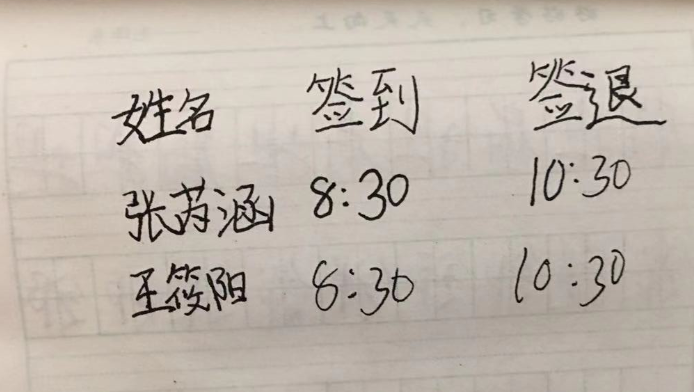 姓名 签到 签退
张芮涵 8:30 10:30
王筱阳 8:30 10:30